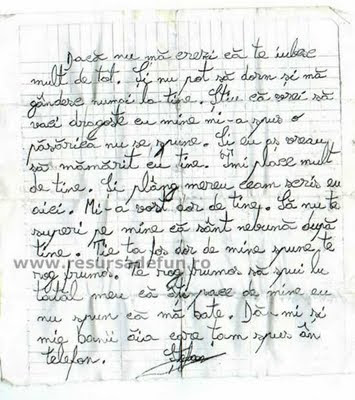 Dacă nu mă crezi că te iubesc
mult de tot. Și nu pot să dorm si mă
gândesc numai la tine. Știu că vrei să
vaci dragoste cu mine mi-a spus o
păsărica nu se spune. Si eu aș vreau
să mămărit cu tine. îmi place mult
de tine. Si plâng mereu ceam scris eu
aici. Mi-a vost dor de tine. Să nu te
superi pe mine că sânt nebună după
tine. Tie ta fos dor de mine spune te
www.resursadefun.ro
rog frumos. Te rog frumos să spui lu
tatal meu că îți place de mine eu
nu spun că mă bate. Dă-mi si
mie banii ăia care tam spus ân
telefon.